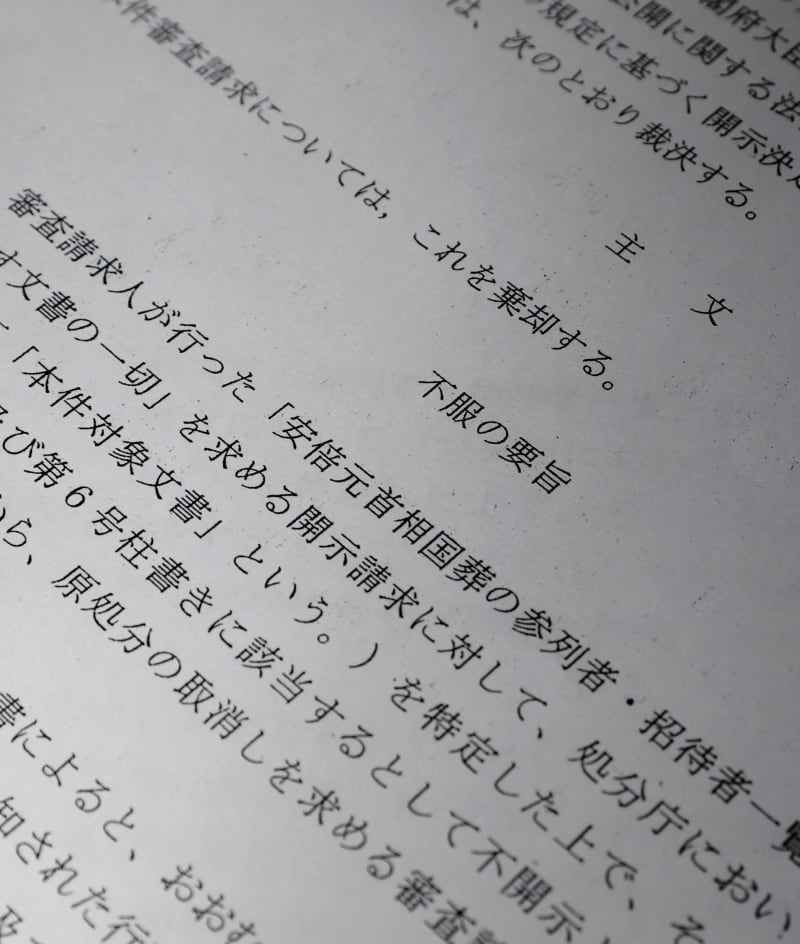 閣府大臣
公開に関する法
の規定に基づく開示決定
は、次のとおり裁決する。
主　文
本件審査請求については，これを棄却する。
不服の要旨
審査請求人が行った「安倍元首相国葬の参列者・招待者一覧
す文書の一切」を求める開示請求に対して、処分庁におい
「本件対象文書」という。）を特定した上で、そ
及び第６号柱書きに該当するとして不開示
ら、原処分の取消しを求める審査請
書によると、おおむ
知された行